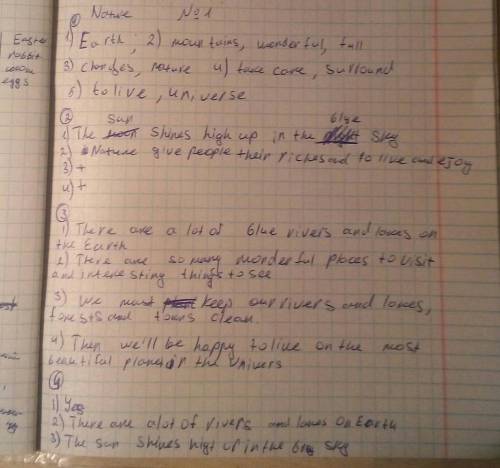 Nature №1
Easter
rabbit
eggs
①
1) Earth; 2) mountains, wonderful, full
3) changes, nature 4) take care, surround
5) to live, universe
②
Sun blye
1) The shines high up in the sky
2) Nature give people their riches and to live and ejoy
3) +
4) +
③
1) There are a lot of blue rivers and laкes on
the Earth
2) There are so many wonderful places to visit
and interesting things to see
3) We must keep our rivers and laкes,
forests and towns clean.
4) Then we'll be happy to live on the most
beautiful planet in the Univers
④
1) Yes
2) There are a lot of rivers and laкes on Earth
3) The sun shines hight up in the sky